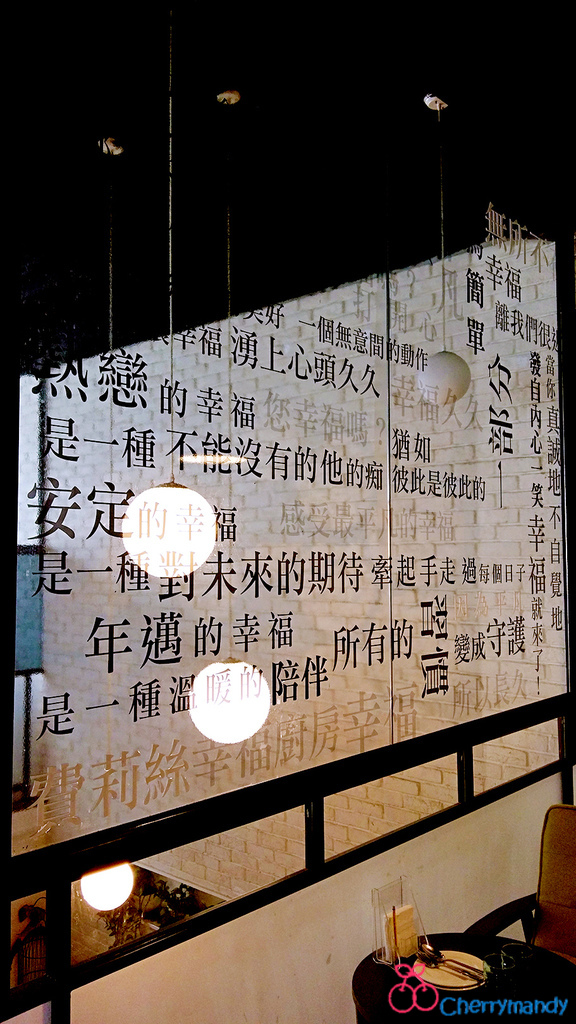 無所不
幸福
簡單
離我們很近
美好 一個無意間的動作
幸福 湧上心頭久久
熱戀的幸福
您幸福嗎?
幸福久久
是一種 不能沒有的他的痴
猶如
彼此是彼此的
一部分
安定的幸福
感受最平凡的幸福
是一種對未來的期待 牽起手走過每個日子
年邁的幸福
所有的
習慣
變成守護
是一種溫暖的陪伴
所以長久
費莉絲幸福廚房幸福
當你真誠地不自覺地
發自內心一笑幸福就來了!
Cherrymandy